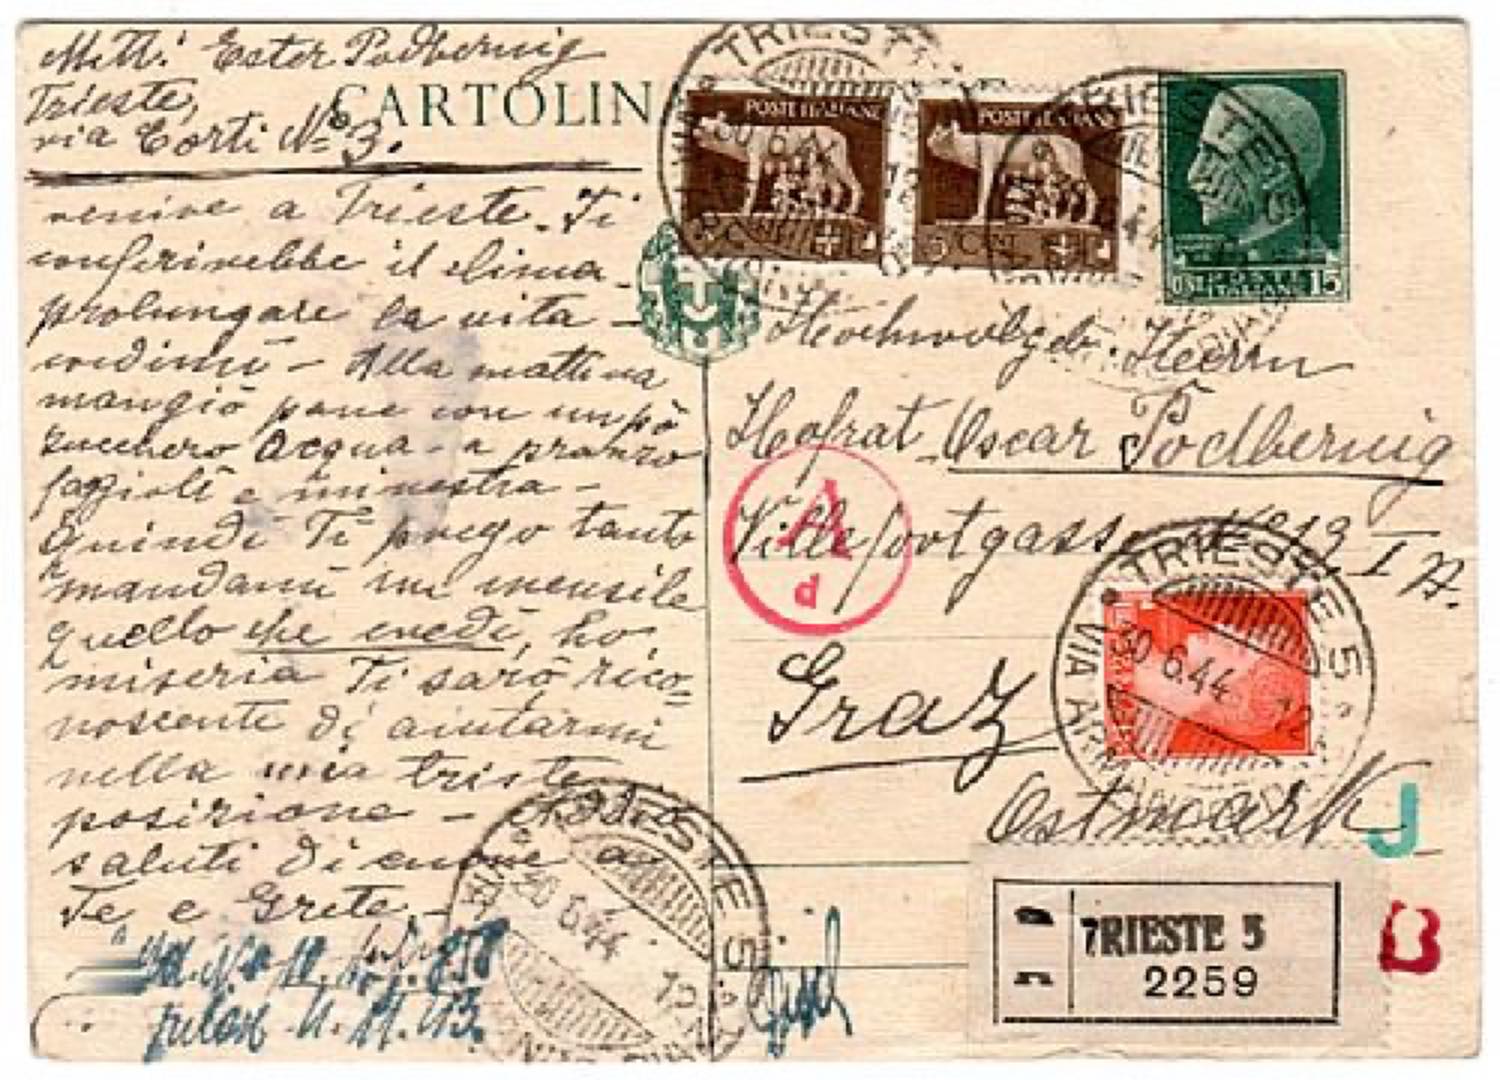 Mitt. Ester Podbernig
Trieste,
via Corti No 3.
CARTOLIN
venire a Trieste. Ti
conferirebbe il clima
prolungare la vita -
credimi - Alla mattina
mangio pane con un pò
zucchero acqua - a pranzo
faggioli e minestra -
Quindi Ti prego tanto
mandami in mensile
quello che credi, ho
miseria Ti sarò rico=
noscente di aiutarmi
nella mia triste
posizione -
saluti di cuore a
Te e Grete -
858
4. 11. 43.
POSTE ITALIANE
POSTE ITALIANE
5 CENT
POSTE
ITALIANE 15
TRIESTE
30 6.44
TRIESTE
Hochwolgeb. Herrn
Hofrat Oscar Podbernig
Villefortgasse No 13 I
A
d
Graz
Ostmark
TRIESTE 5
VIA
30 6.44 12
TRIESTE 5
30 6.44 12
J
R
TRIESTE 5
2259